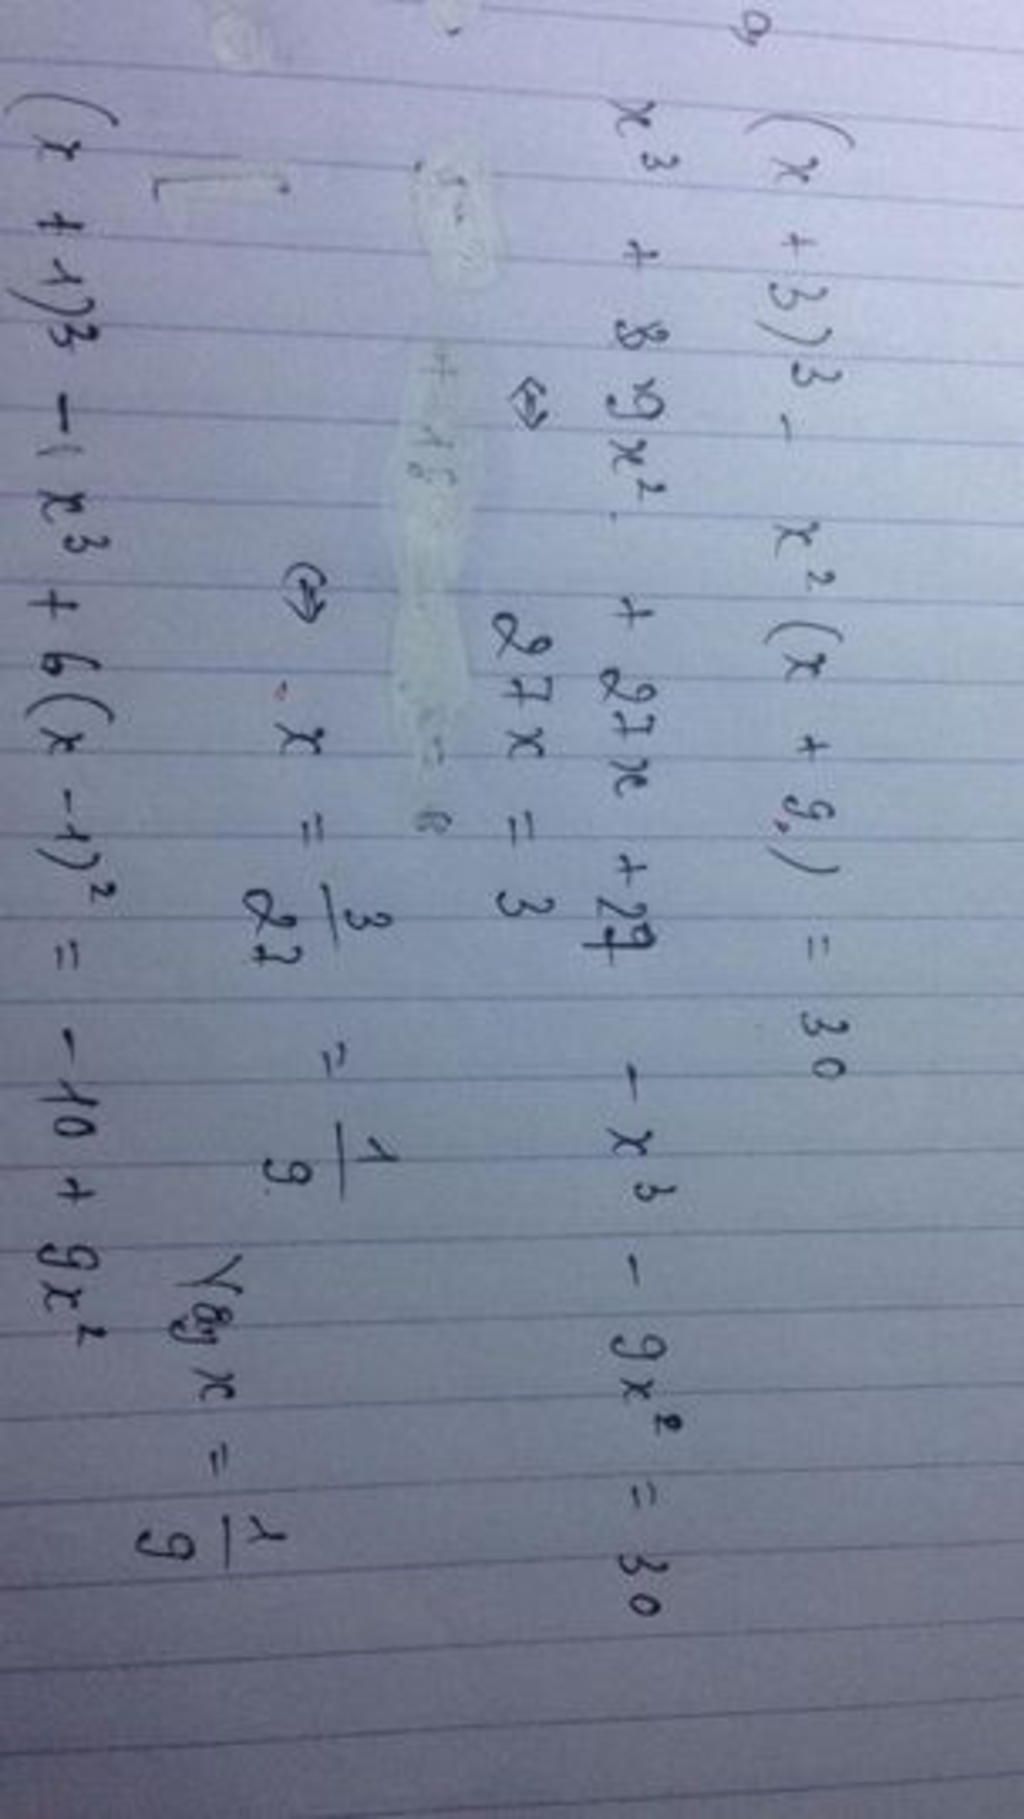 a,
(x + 3)3 - x² (x + 9) = 30
x³ + 9x² + 27x + 27 - x³ - 9x² = 30
⇔ 27x = 3
⇔ x = 3/27 = 1/9
Vậy x = 1/9
(x + 1)3 - x³ + 6(x - 1)² = - 10 + 9x²